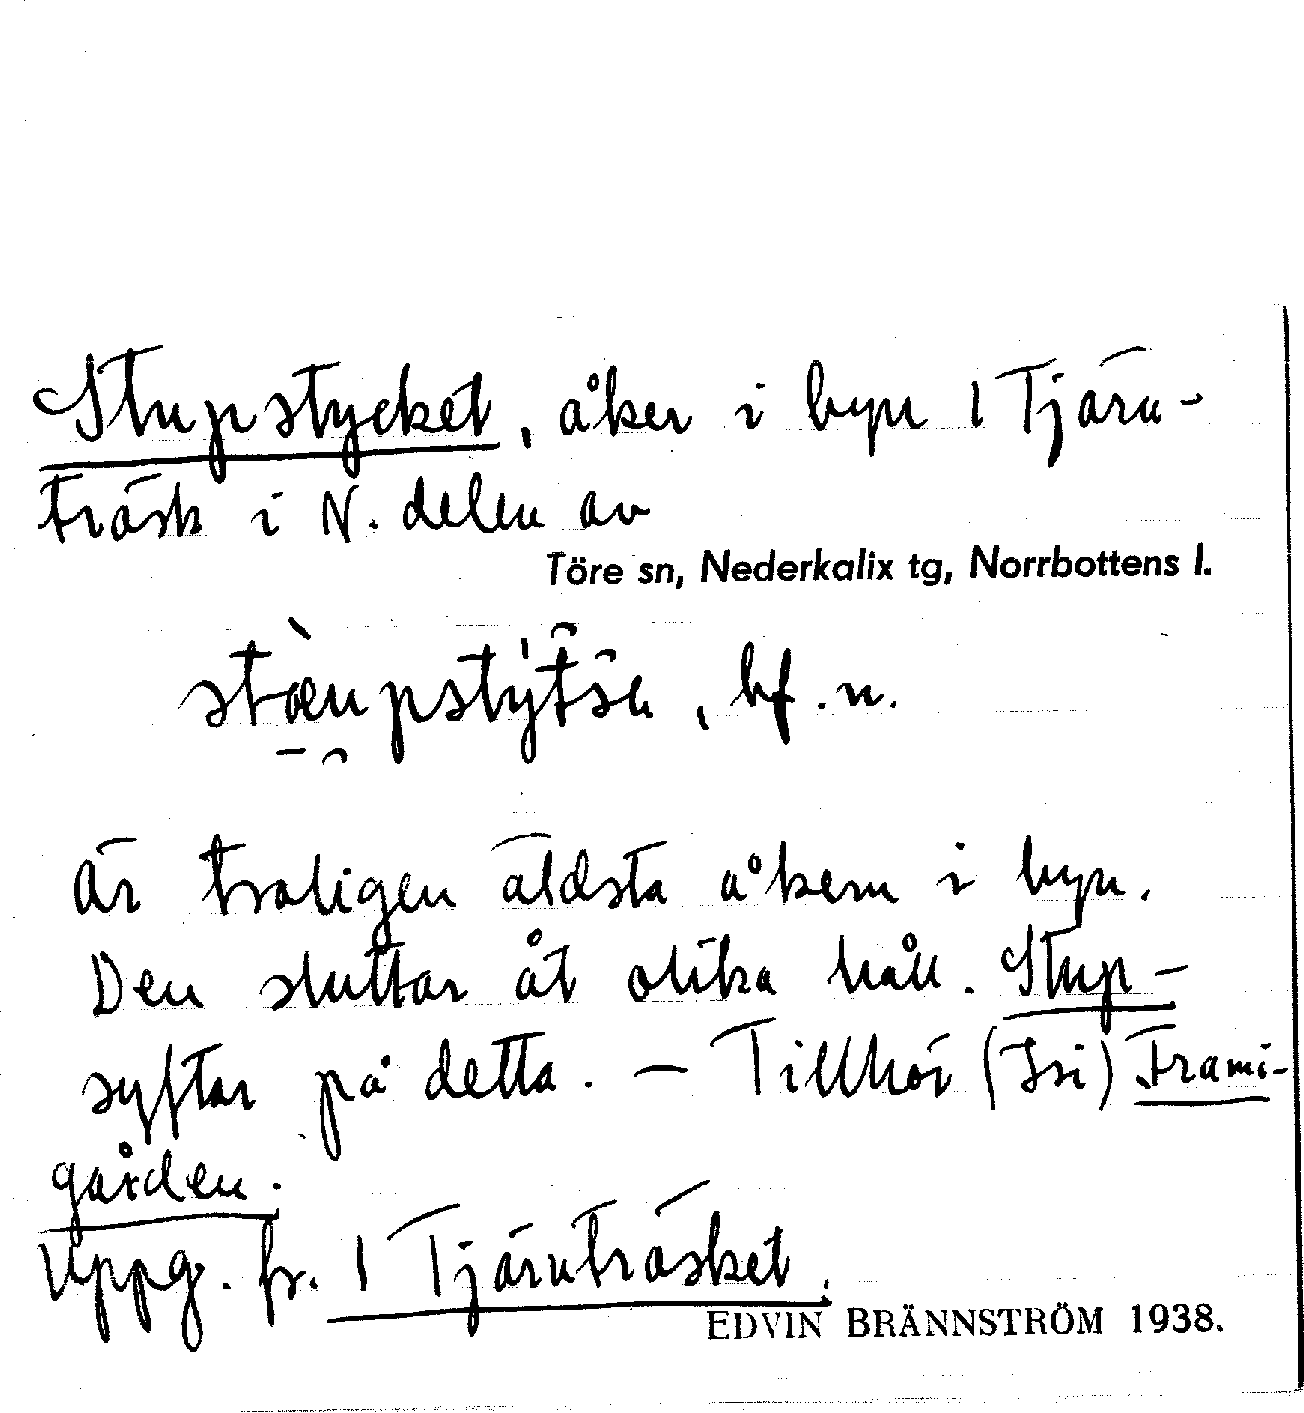 Stupstycket, åker i byn 1 Tjärn-
träsk i N. delen av
Töre sn, Nederkalix tg, Norrbottens l.
bf. n.
Är troligen äldsta åkern i byn.
Den sluttar åt olika håll. Stup-
syftar på detta. — Tillhör Frami-
gården.
Uppg. fr. 1 Tjärnträsket.
EDVIN BRÄNNSTRÖM 1938.